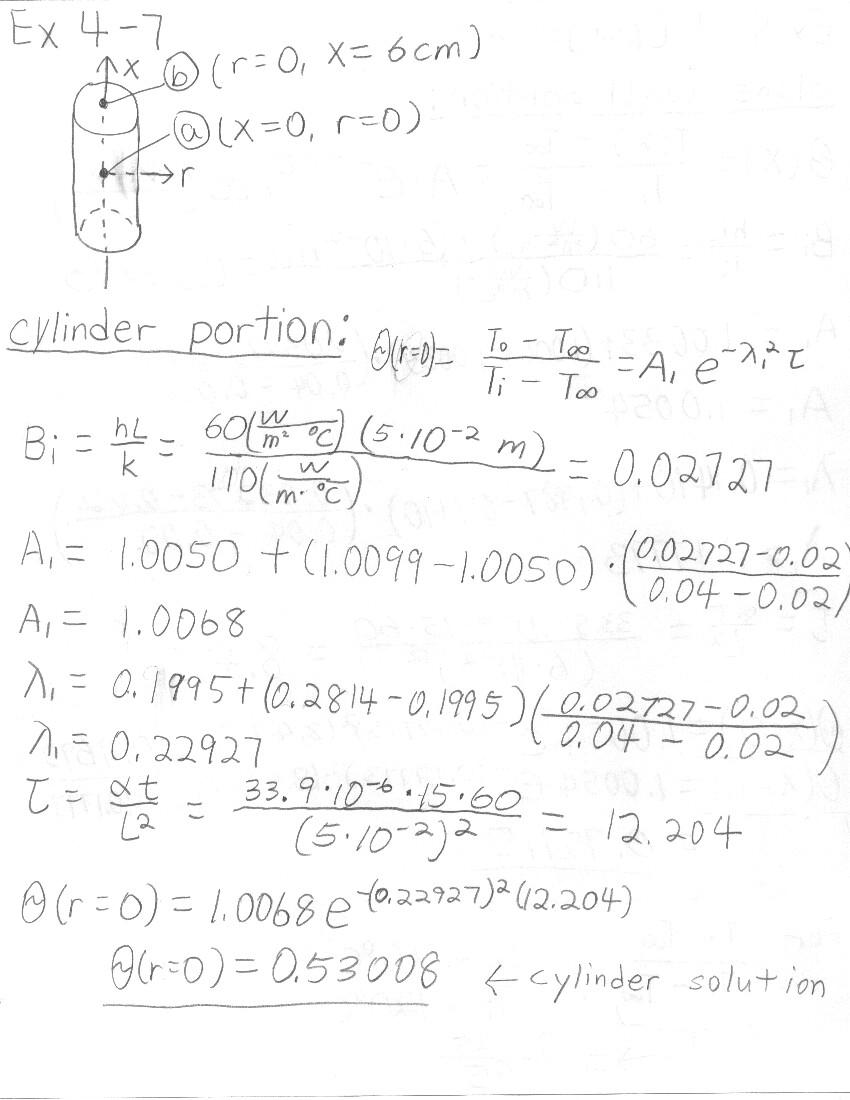 Ex 4-7
x ⓑ (r=0, x=6cm)
ⓐ (x=0, r=0)
r
cylinder portion: θ(r=0)= (T₀ - T∞)/(Tᵢ - T∞) = A₁ e^(-λ₁²τ)
Bi = hL/k = (60(W/m² °C) (5·10⁻² m))/(110(W/m·°C)) = 0.02727
A₁ = 1.0050 + (1.0099-1.0050)·((0.02727-0.02)/(0.04-0.02))
A₁ = 1.0068
λ₁ = 0.1995+(0.2814-0.1995)((0.02727-0.02)/(0.04-0.02))
λ₁ = 0.22927
τ = αt/L² = (33.9·10⁻⁶·15·60)/((5·10⁻²)²) = 12.204
θ(r=0) = 1.0068 e^(-(0.22927)²(12.204))
θ(r=0) = 0.53008 ← cylinder solution